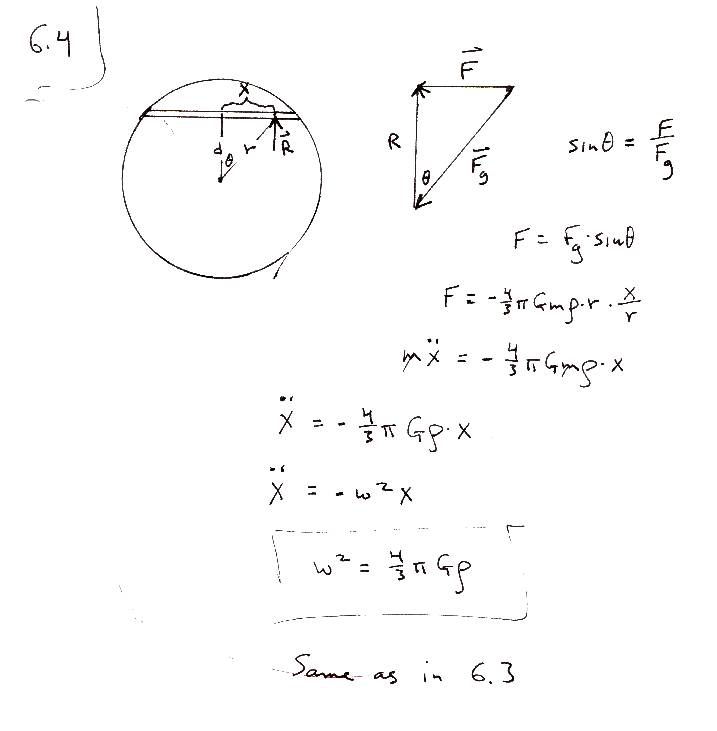 6.4
x
d θ r R⃗
F⃗
R θ F⃗g
sinθ = F/Fg
F = Fg·sinθ
F = -4/3 π G m ρ·r · x/r
mẍ = -4/3 π G m ρ·x
ẍ = -4/3 π G ρ·x
ẍ = -ω²x
ω² = 4/3 π G ρ
Same as in 6.3